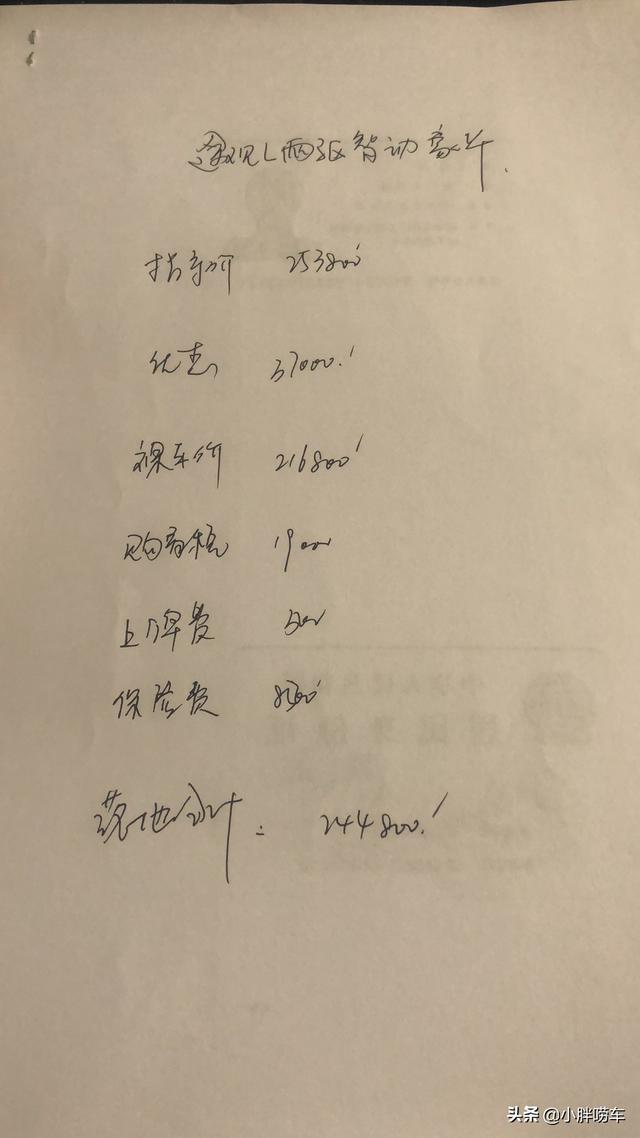 途观L两驱智动豪华.
指导价 253800
优惠 37000.
裸车价 216800
购置税 19000
上牌费 500
保险费 8500
落地合计: 244800.
头条 @小胖唠车